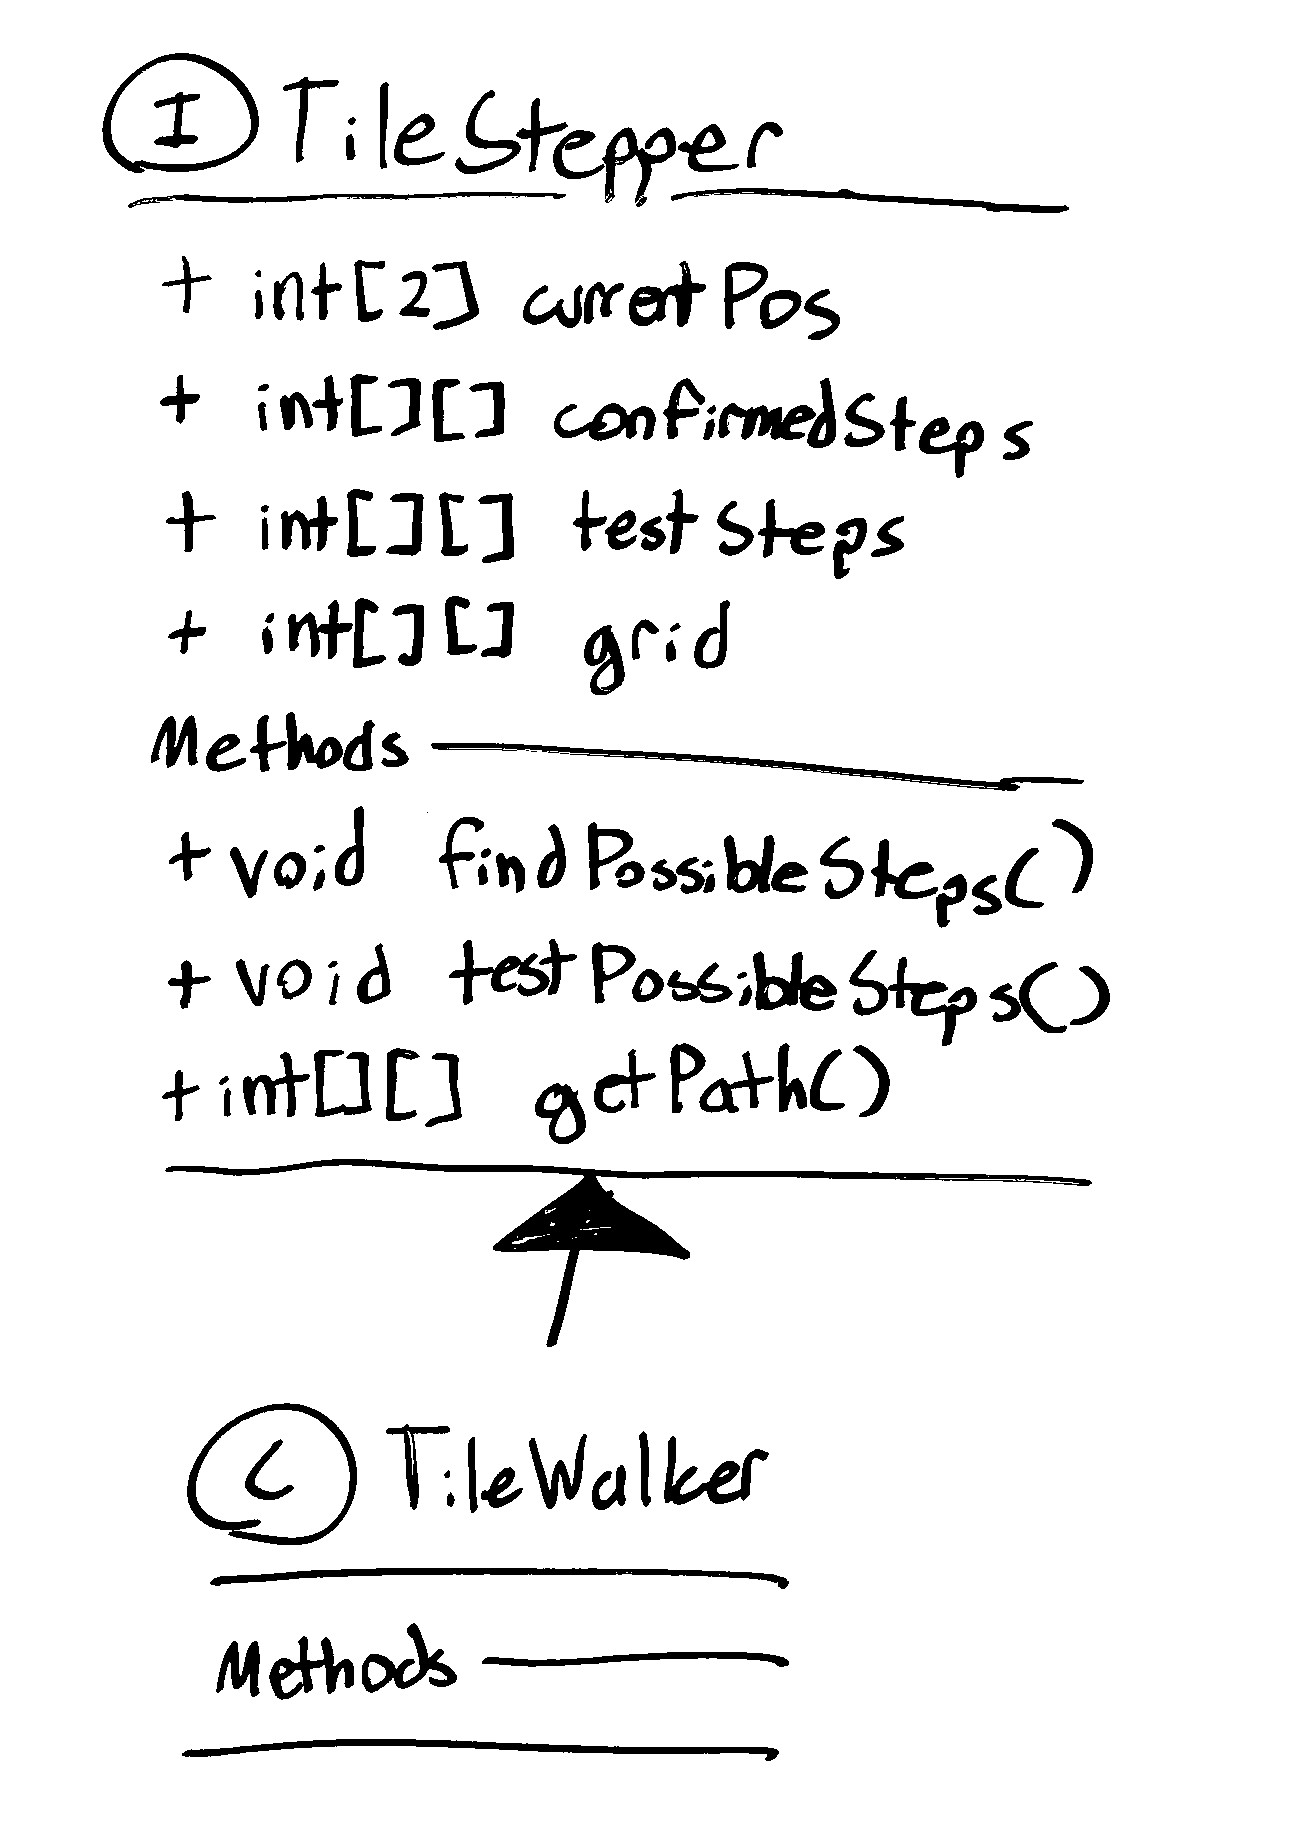 I TileStepper
+ int[2] currentPos
+ int[][] confirmedSteps
+ int[][] testSteps
+ int[][] grid
Methods
+ void findPossibleSteps()
+ void testPossibleSteps()
+ int[][] getPath()
C TileWalker
Methods